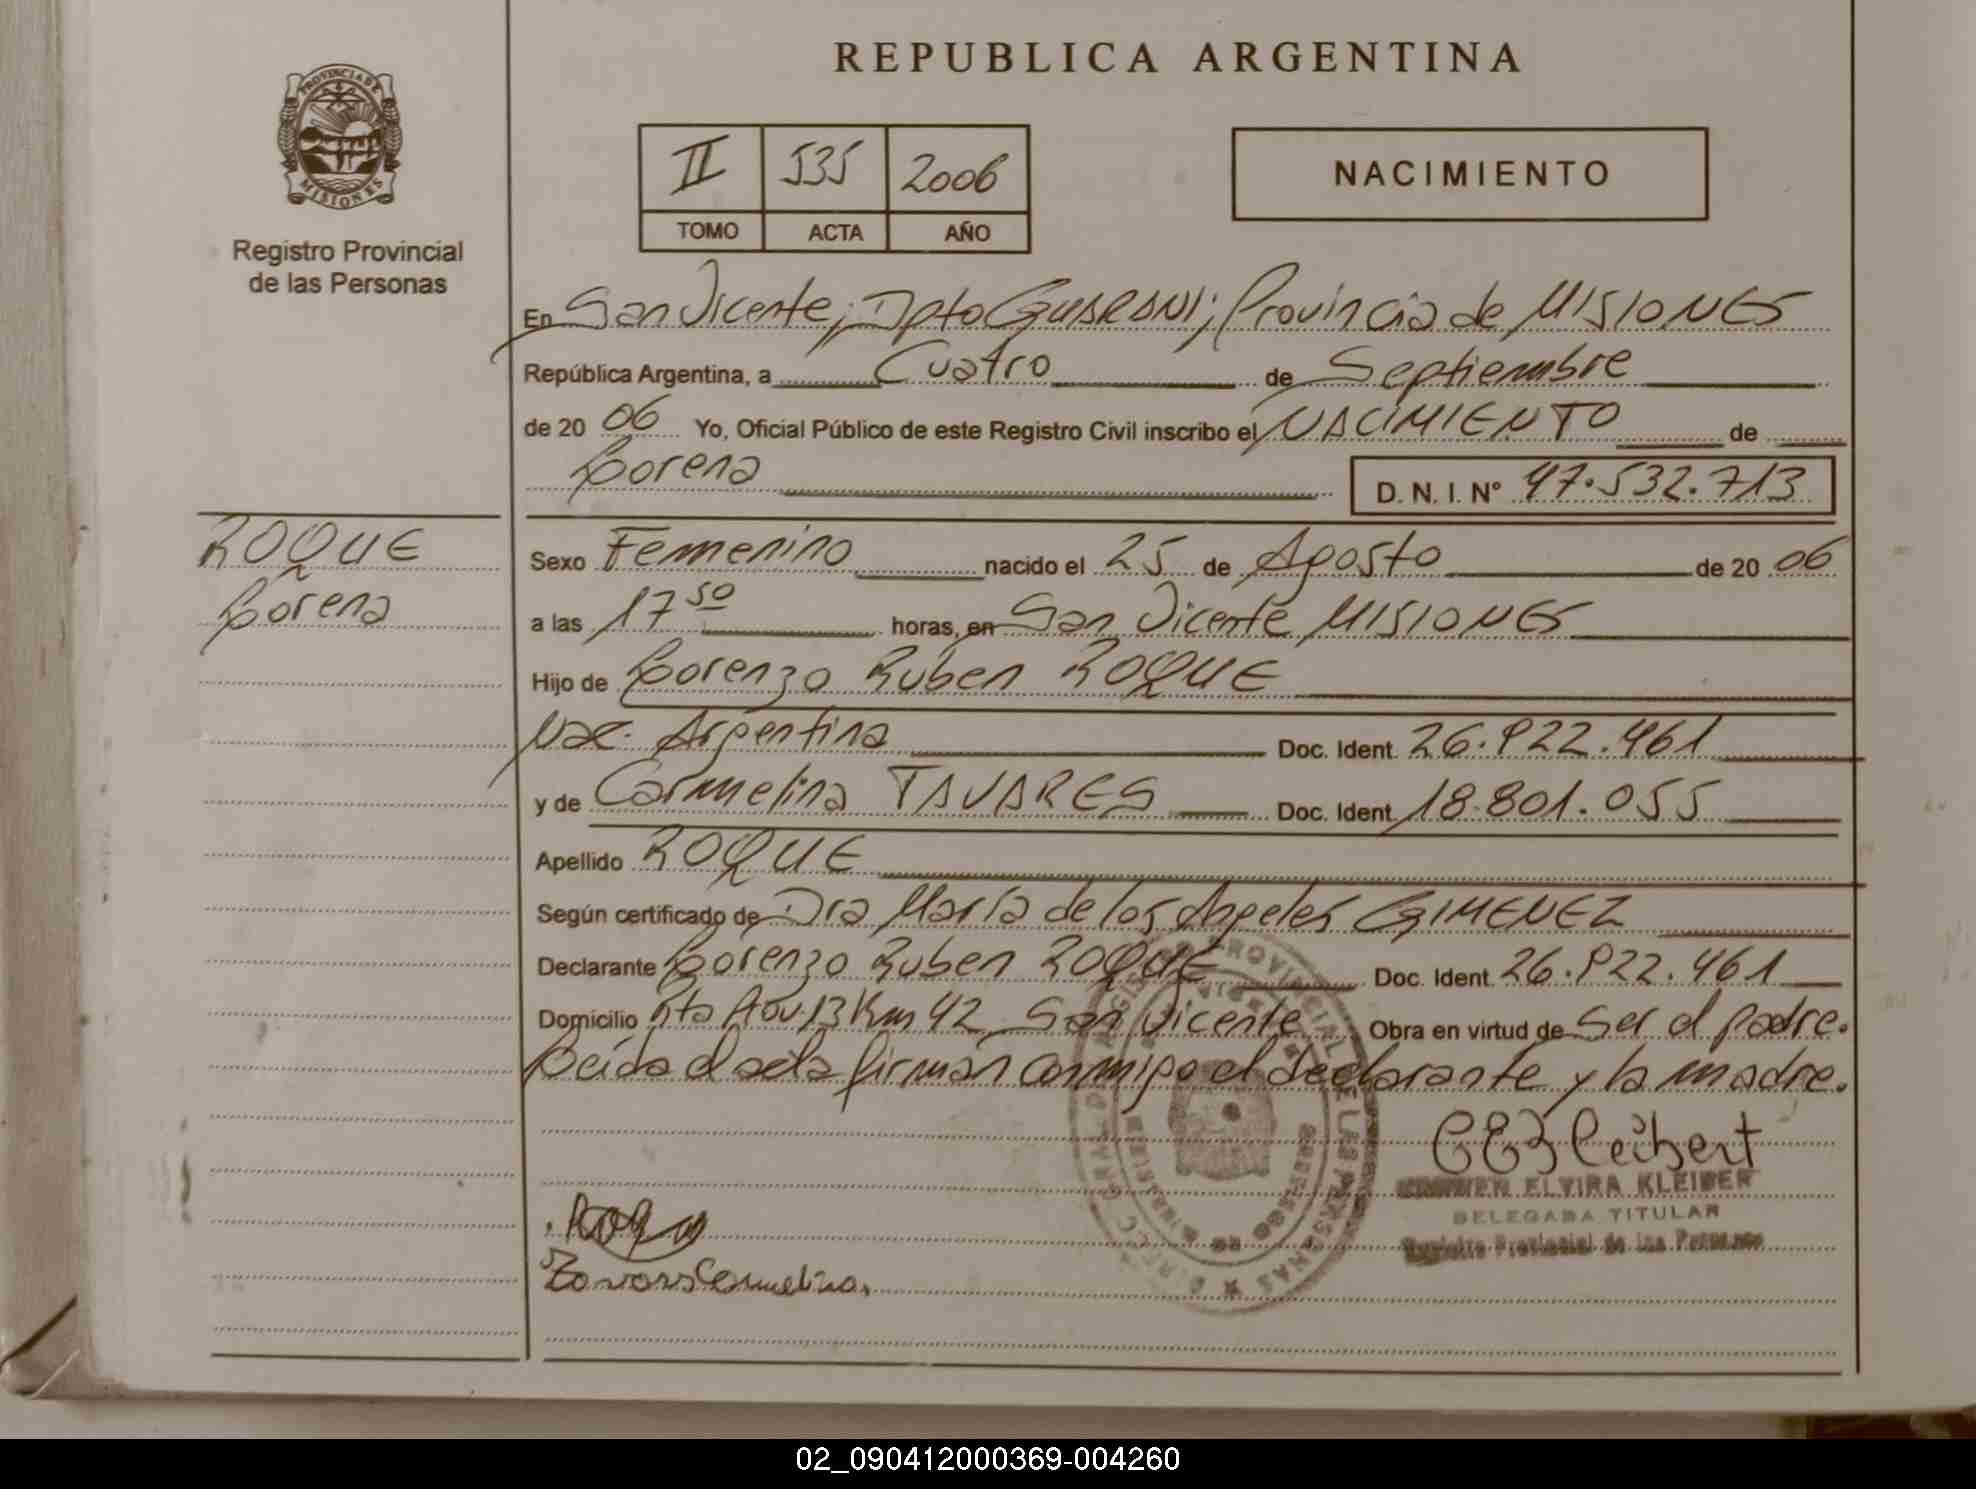 REPUBLICA ARGENTINA
PROVINCIA DE
MISIONES
Registro Provincial
de las Personas
II 535 2006
TOMO ACTA AÑO
NACIMIENTO
En San Vicente; Dpto GUARANI; Provincia de MISIONES
República Argentina, a Cuatro de Septiembre
de 20 06 Yo, Oficial Público de este Registro Civil inscribo el NACIMIENTO de
Lorena D. N. I. Nº 47.532.713
ROQUE
Lorena
Sexo Femenino nacido el 25 de Agosto de 20 06
a las 17 50 horas, en San Vicente MISIONES
Hijo de Lorenzo Ruben ROQUE
Nac. Argentina Doc. Ident. 26.922.461
y de Carmelina TAVARES Doc. Ident. 18.801.055
Apellido ROQUE
Según certificado de Dra María de los Angeles GIMENEZ
Declarante Lorenzo Ruben ROQUE Doc. Ident. 26.922.461
Domicilio Rta Prov. 13 Km 42 San Vicente Obra en virtud de Ser el padre.
Leída el acta firman conmigo el declarante y la madre.
ELVIRA KLEIBER
DELEGADA TITULAR
Registro Provincial de las Personas
Carmelina
02_090412000369-004260